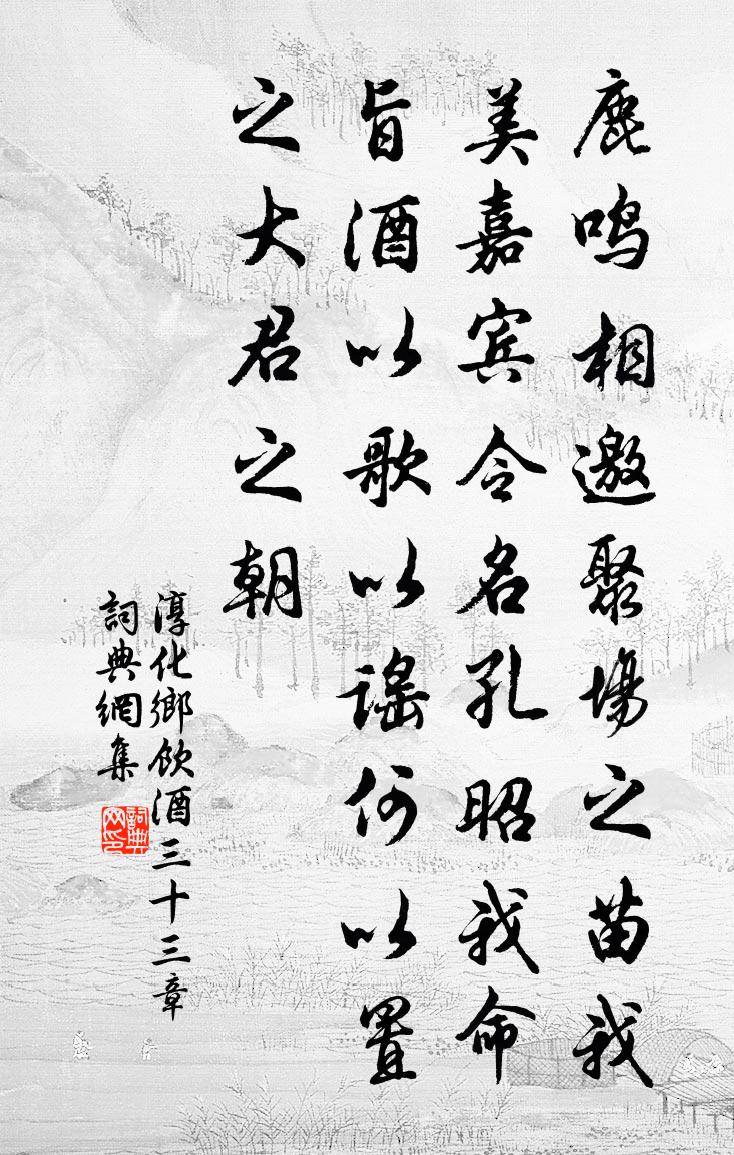 鹿鸣相邀聚場之苗我
美嘉宾令名孔昭我命
旨酒以歌以謡何以置
之大君之朝
淳化鄉飲酒三十三章
詞典網集
詞典网印